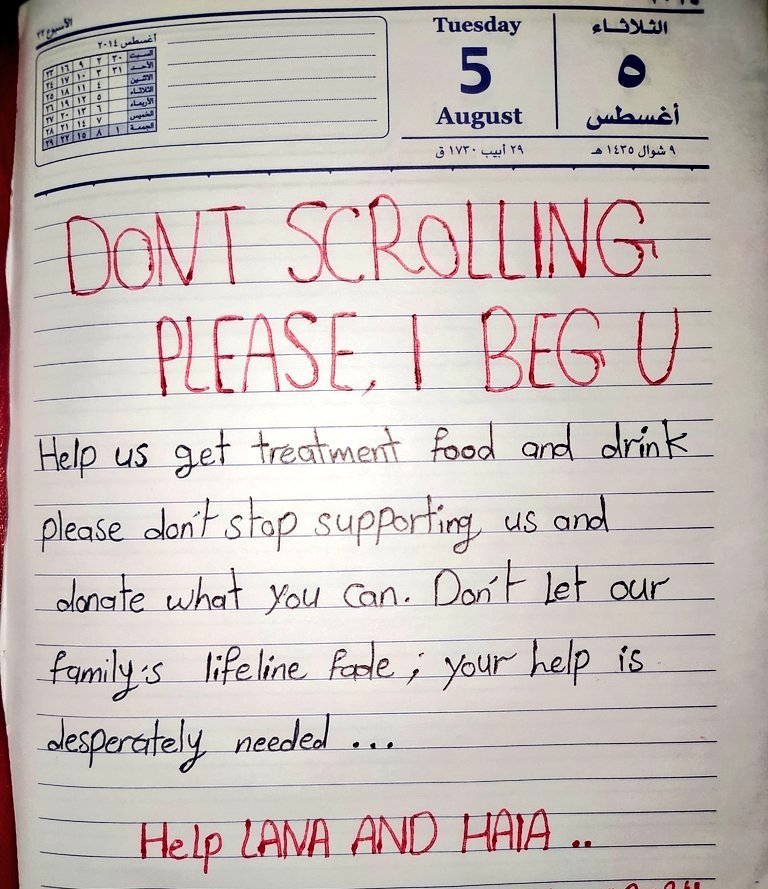 الأسبوع ٣٢
أغسطس ٢٠١٤
السبت ٣٠ ٢ ٩ ١٦ ٢٣
الأحد ٣١ ٣ ١٠ ١٧ ٢٤
الاثنين ٤ ١١ ١٨ ٢٥
الثلاثاء ٥ ١٢ ١٩ ٢٦
الأربعاء ٦ ١٣ ٢٠ ٢٧
الخميس ٧ ١٤ ٢١ ٢٨
الجمعة ١ ٨ ١٥ ٢٢ ٢٩
Tuesday
5
August
الثلاثاء
٥
أغسطس
٢٩ أبيب ١٧٣٠ ق
٩ شوال ١٤٣٥ هـ
DONT SCROLLING
PLEASE, I BEG U
Help us get treatment food and drink
please don't stop supporting us and
donate what you can. Don't let our
family's lifeline fade ; your help is
desperately needed ...
Help LANA AND HAIA ..